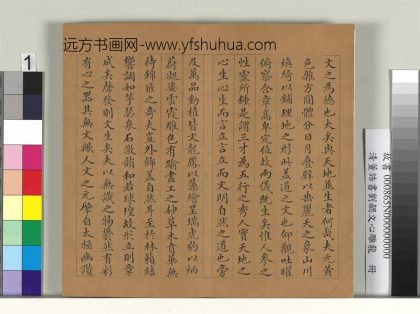 远方书画网-www.yfshuhua.com
1
故書000865N000000000
清董誥書劉勰文心雕龍 冊
文之為德也大矣與天地並生者何哉夫元黃
色雜方圓體分日月疊璧以垂麗天之象山川
煥綺以鋪理地之形此蓋道之文也仰觀吐曜
俯察含章高卑定位故兩儀既生矣惟人參之
性靈所鍾是謂三才為五行之秀人實天地之
心生心生而言立言立而文明自然之道也旁
及萬品動植皆文龍鳳以藻繪呈瑞虎豹以炳
蔚凝姿雲霞雕色有踰畫工之妙草木賁華無
待錦匠之奇夫豈外飾蓋自然耳至於林籟結
響調如竽瑟泉石激韻和若球鍠故形立則章
成矣聲發則文生矣夫以無識之物鬱然有彩
有心之器其無文歟人文之元肇自太極幽讚